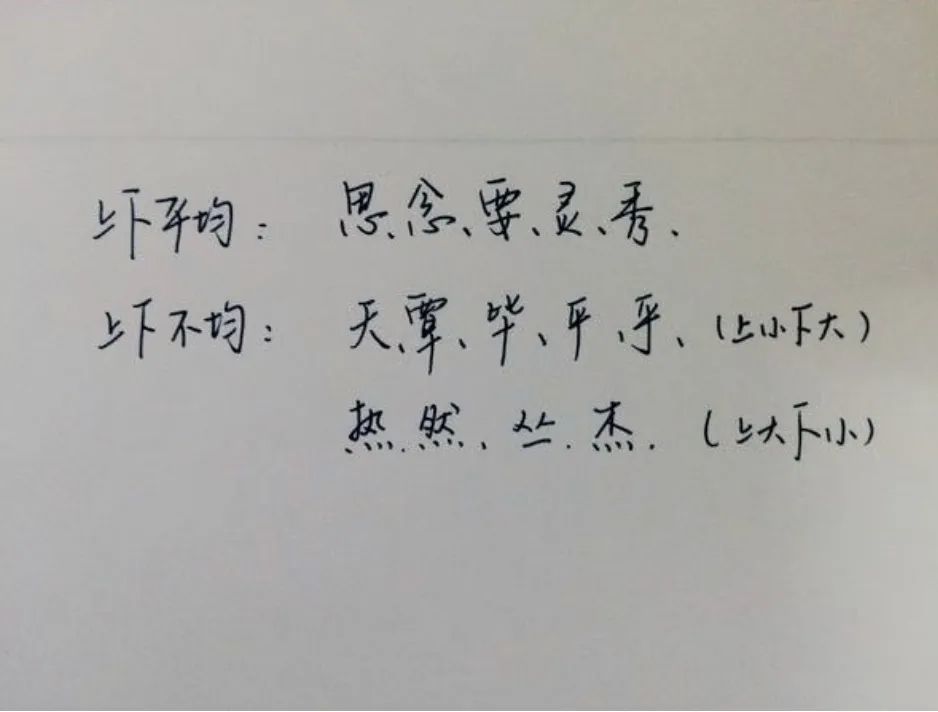 上下平均：思、念、要、灵、秀.
上下不均：天、覃、毕、平、乎、(上小下大)
热.然、丛.杰.(上大下小)